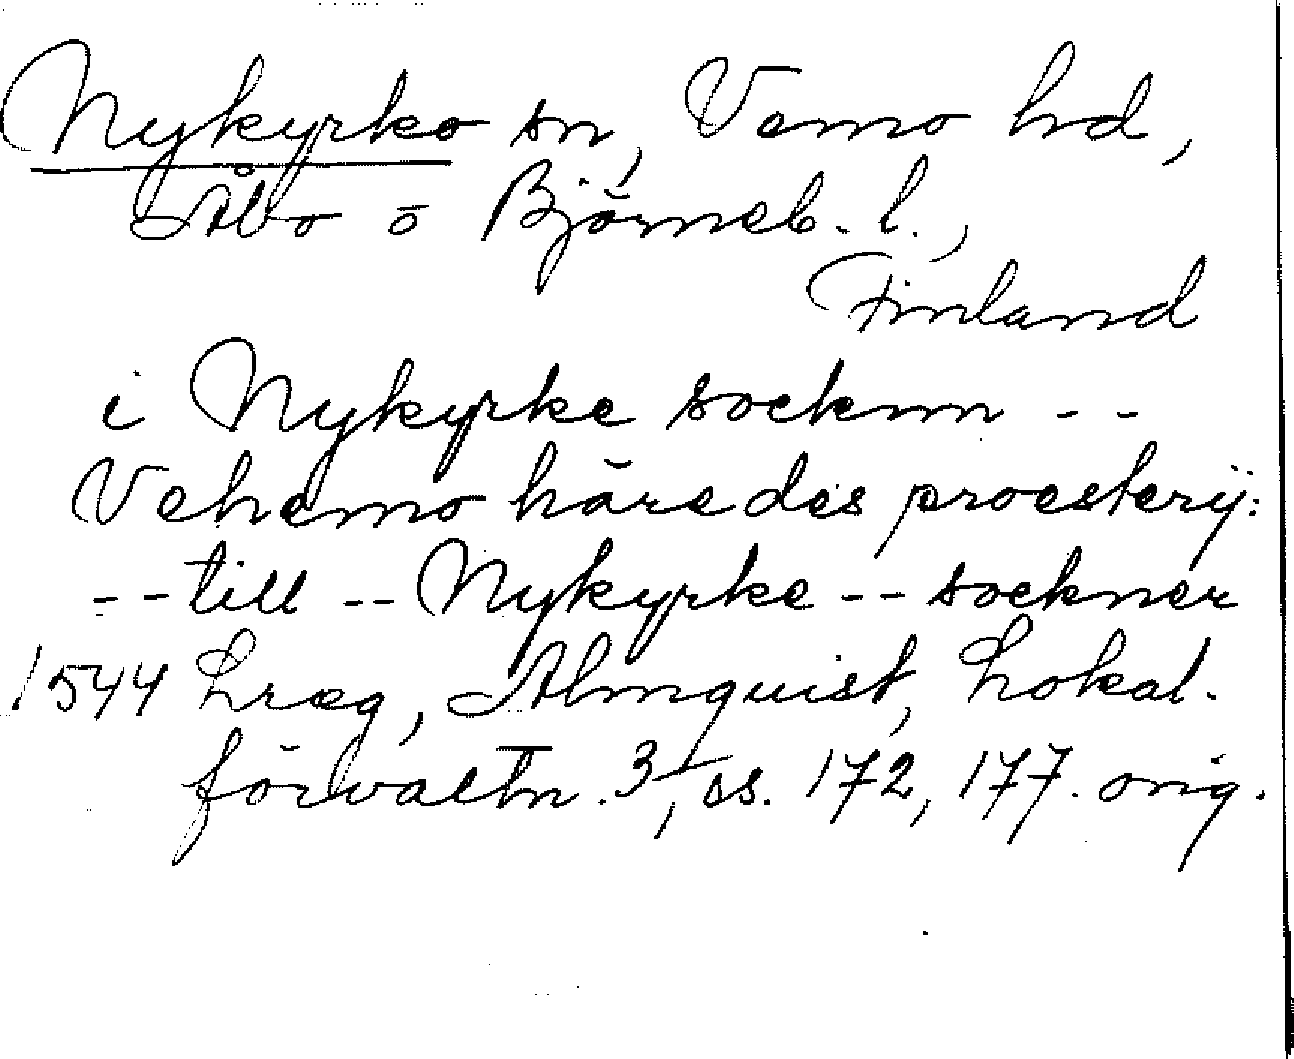 Nykyrko sn, Vemo hd,
Åbo o Björneb. l.,
Finland
i Nykyrke socknn --
Vehemo häredes proesterij:
-- till -- Nykyrke -- sockner
1544 Lræg, Almquist, Lokal-
förvaltn. 3, ss. 172, 177. orig.